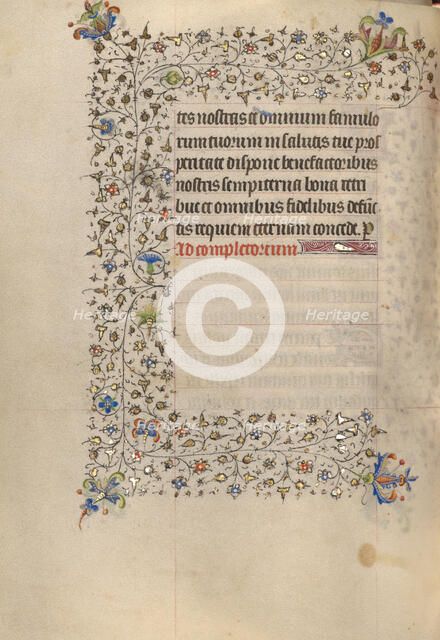 tes nostras et omnium famulo
rum tuorum in salutis tue pros
peritate dispone benefactoribus
nostris sempiterna bona retri
bue et omnibus fidelibus defūc
tis requiem eternam concede. P
Ad completorium
Heritage Images
Heritage Images
Heritage Images
Heritage Images